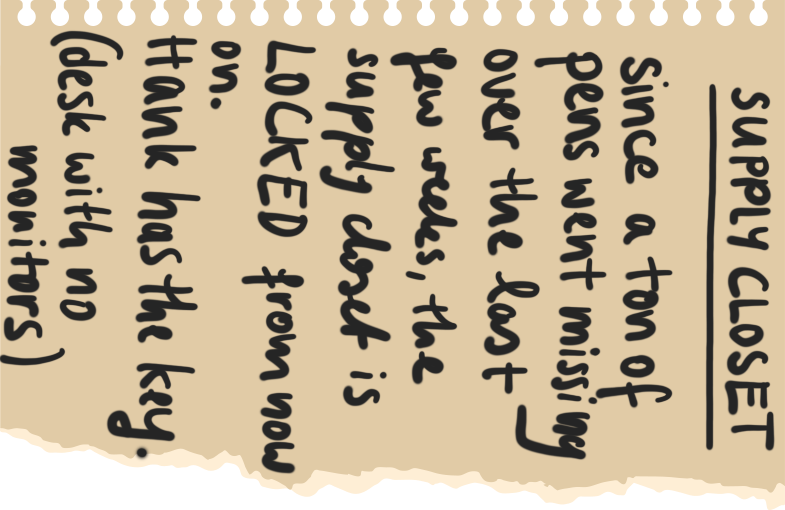 SUPPLY CLOSET
Since a ton of
pens went missing
over the last
few weeks, the
supply closet is
LOCKED from now
on.
Hank has the key.
(desk with no
monitors)